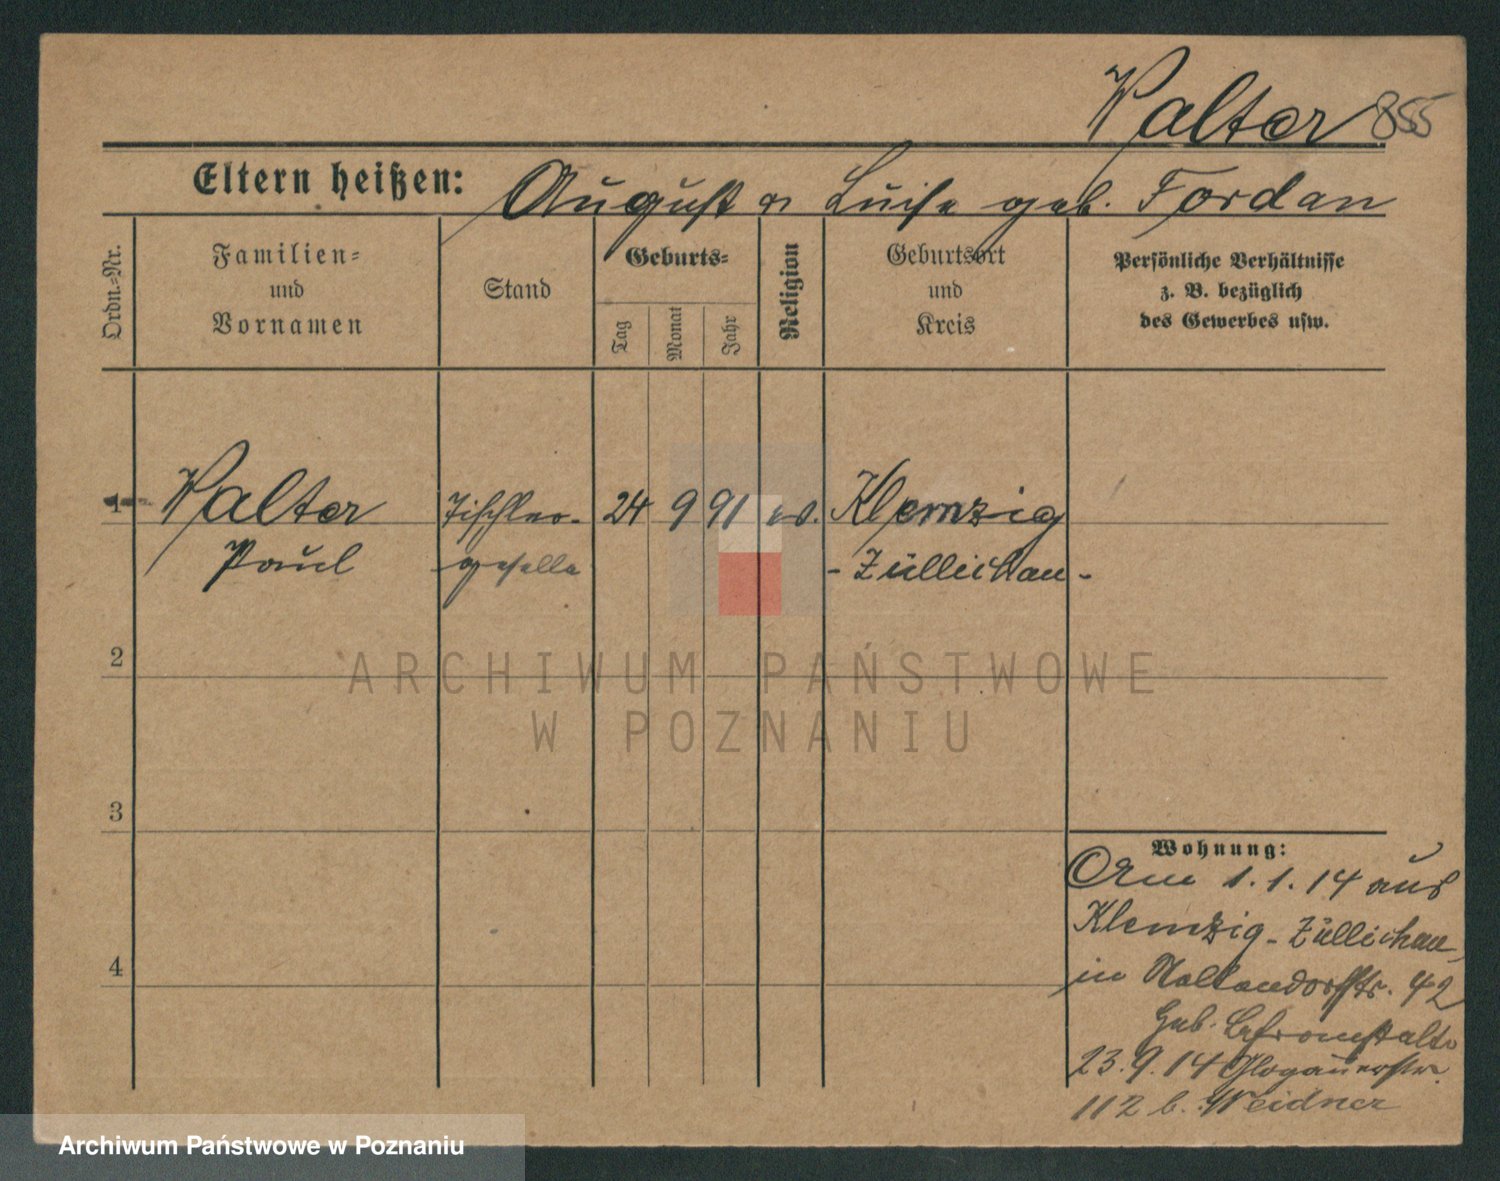 Walter 855
Eltern heißen: August u Luise geb. Jordan
Ordn.-Nr.
Familien-
und
Vornamen
Stand
Geburts-
Tag
Monat
Jahr
Religion
Geburtsort
und
Kreis
Persönliche Verhältnisse
z. B. bezüglich
des Gewerbes usw.
1 Walter Tischler- 24 9 91 ev. Klemzig
Paul geselle - Züllichau -
2
3
4
Wohnung:
Am 1.1.14 aus
Klemzig - Züllichau
in 42
Geb.
23.9.14 Glogauerstr.
112 b. Weidner
ARCHIWUM PAŃSTWOWE
W POZNANIU
Archiwum Państwowe w Poznaniu